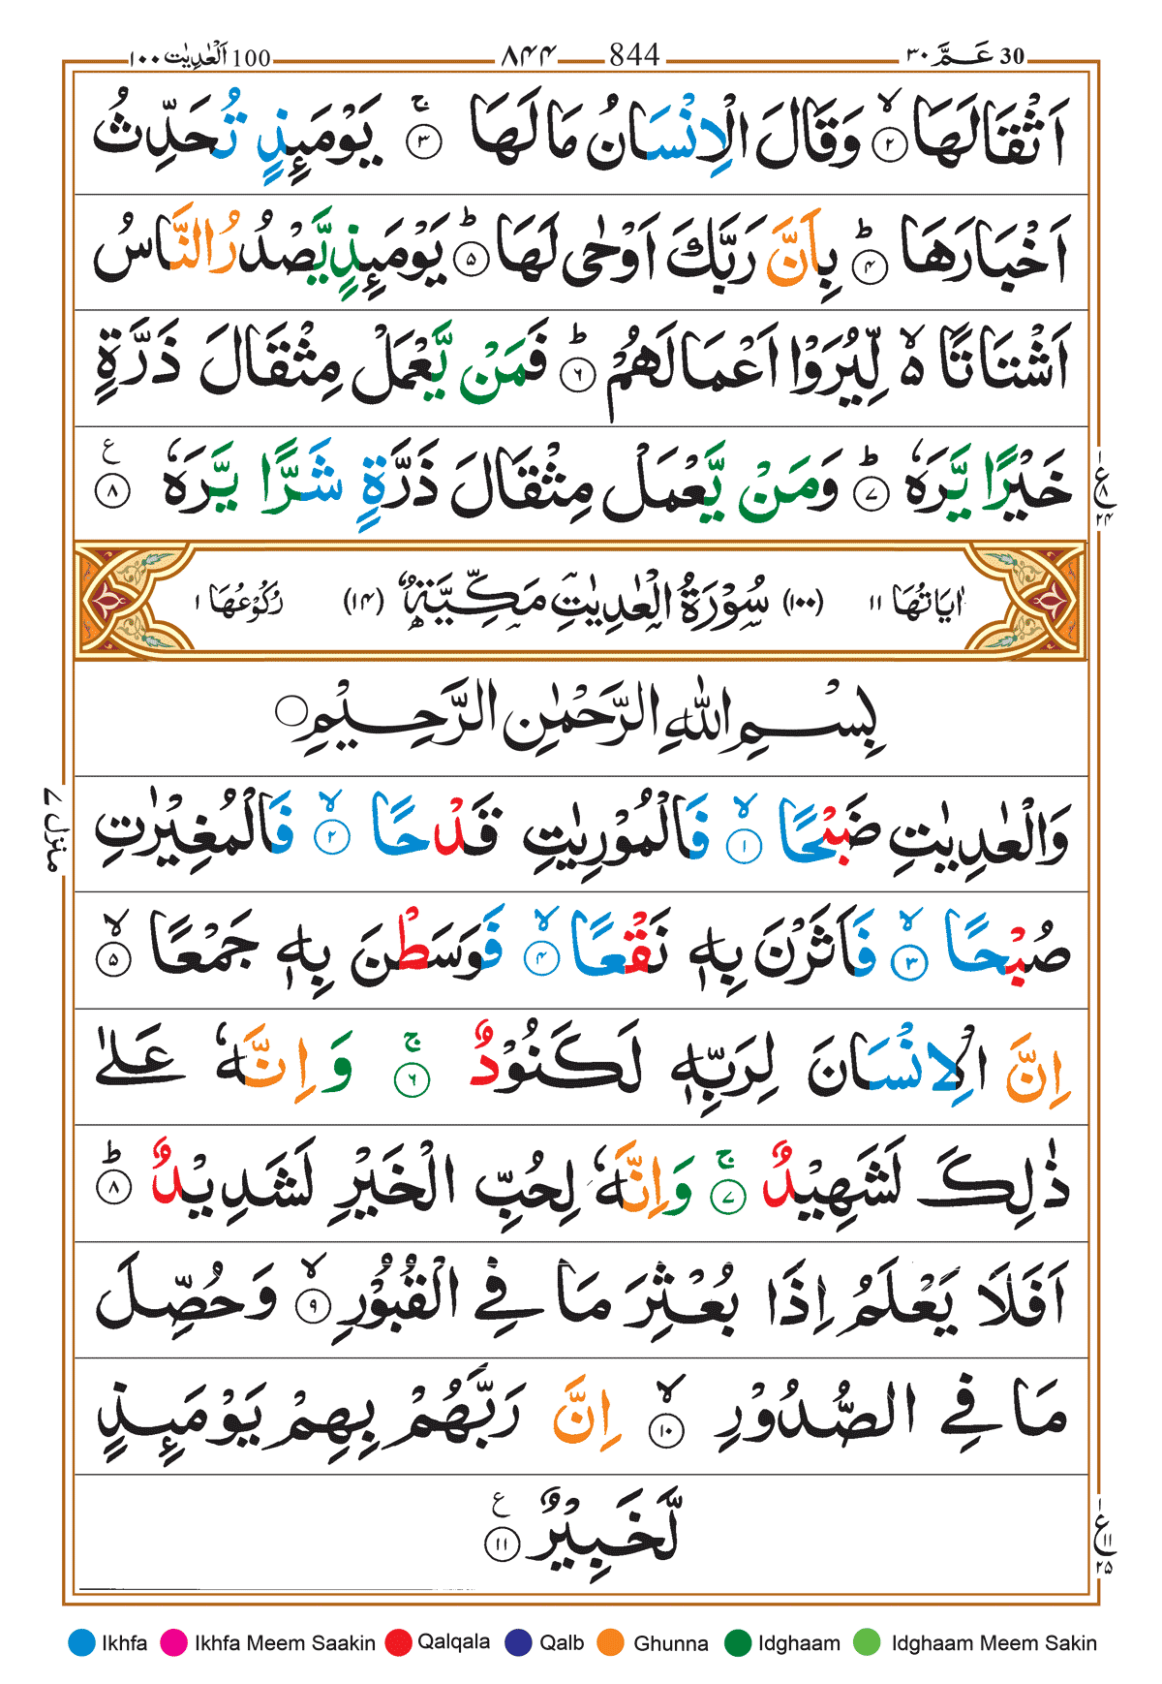 30 عَـمَّ ٣٠ 844 ٨٤٤ 100 اَلْعٰدِيٰت ١٠٠
اَثْقَالَهَا ۙ﴿٢﴾ وَقَالَ الْاِنْسَانُ مَا لَهَا ۚ﴿٣﴾ يَوْمَئِذٍ تُحَدِّثُ
اَخْبَارَهَا ؕ﴿٤﴾ بِاَنَّ رَبَّكَ اَوْحٰى لَهَا ؕ﴿٥﴾ يَوْمَئِذٍ يَّصْدُرُ النَّاسُ
اَشْتَاتًا ۙ۬ لِّيُرَوْا اَعْمَالَهُمْ ؕ﴿٦﴾ فَمَنْ يَّعْمَلْ مِثْقَالَ ذَرَّةٍ
خَيْرًا يَّرَهٗ ؕ﴿٧﴾ وَمَنْ يَّعْمَلْ مِثْقَالَ ذَرَّةٍ شَرًّا يَّرَهٗ ﴿٨﴾ ع
ع ٨ ٢٤
اٰيَاتُهَا ١١ (١٠٠) سُوْرَةُ الْعٰدِيٰتِ مَكِّيَّةٌ (١٤) رُكُوْعُهَا ١
بِسْمِ اللّٰهِ الرَّحْمٰنِ الرَّحِيْمِ
وَالْعٰدِيٰتِ ضَبْحًا ۙ﴿١﴾ فَالْمُوْرِيٰتِ قَدْحًا ۙ﴿٢﴾ فَالْمُغِيْرٰتِ
منزل ٧
صُبْحًا ۙ﴿٣﴾ فَاَثَرْنَ بِهٖ نَقْعًا ۙ﴿٤﴾ فَوَسَطْنَ بِهٖ جَمْعًا ۙ﴿٥﴾
اِنَّ الْاِنْسَانَ لِرَبِّهٖ لَكَنُوْدٌ ۚ﴿٦﴾ وَاِنَّهٗ عَلٰى
ذٰلِكَ لَشَهِيْدٌ ۚ﴿٧﴾ وَاِنَّهٗ لِحُبِّ الْخَيْرِ لَشَدِيْدٌ ؕ﴿٨﴾
اَفَلَا يَعْلَمُ اِذَا بُعْثِرَ مَا فِي الْقُبُوْرِ ۙ﴿٩﴾ وَحُصِّلَ
مَا فِي الصُّدُوْرِ ۙ﴿١٠﴾ اِنَّ رَبَّهُمْ بِهِمْ يَوْمَئِذٍ
لَّخَبِيْرٌ ﴿١١﴾ ع
ع ١١ ٢٥
Ikhfa Ikhfa Meem Saakin Qalqala Qalb Ghunna Idghaam Idghaam Meem Sakin